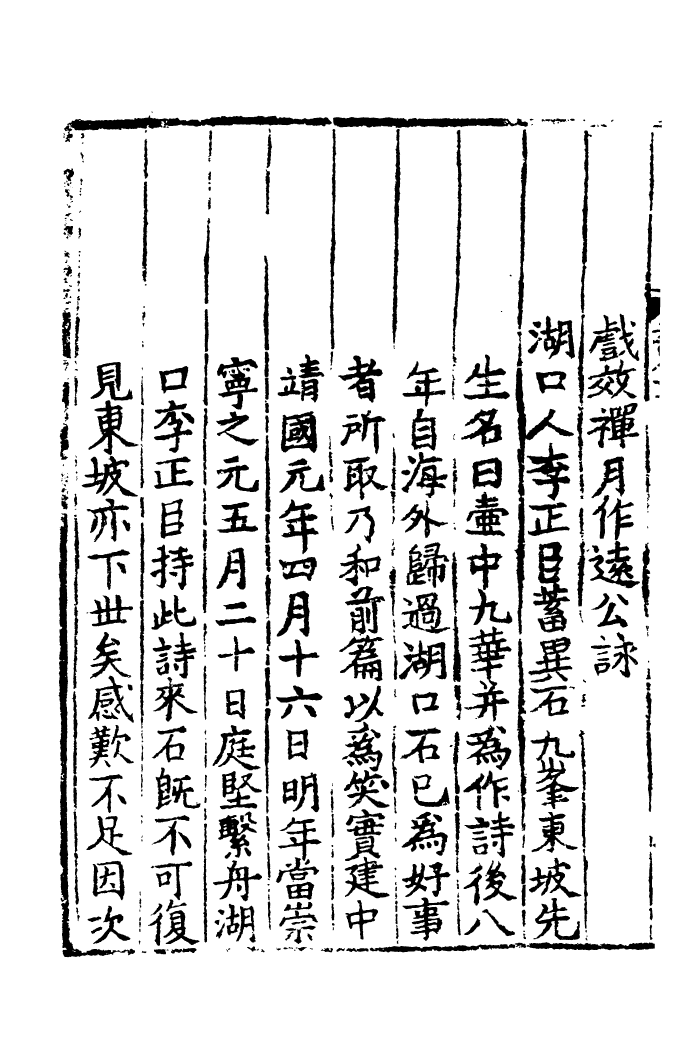 戲效禪月作遠公詠
湖口人李正臣蓄異石九峯東坡先
生名曰壷中九華并為作詩後八
年自海外歸過湖口石已爲好事
者所取乃和前篇以爲笑實建中
靖國元年四月十六日明年當崇
寧之元五月二十日庭堅繫舟湖
口李正臣持此詩來石既不可復
見東坡亦下丗矣感歎不足因次